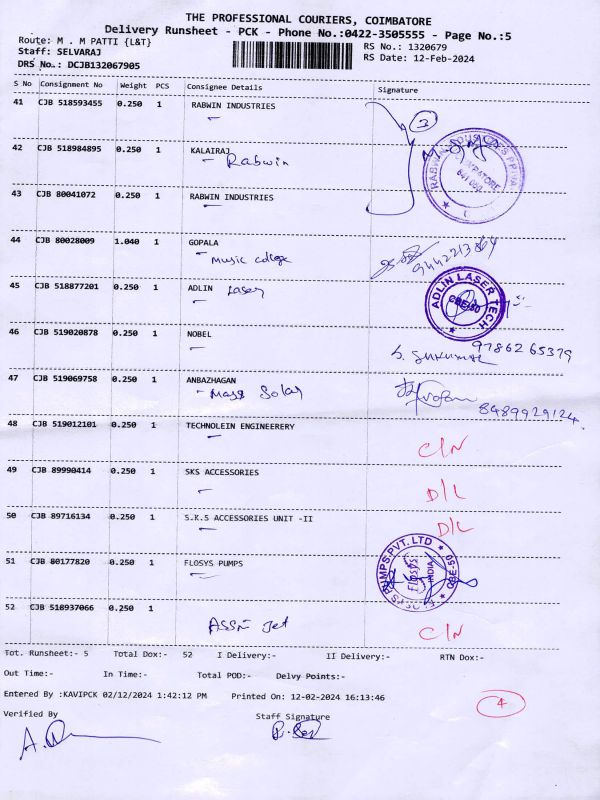 THE PROFESSIONAL COURIERS, COIMBATORE
Delivery Runsheet - PCK - Phone No.:0422-3505555 - Page No.:5
Route: M . M PATTI {L&T}
RS No.: 1320679
Staff: SELVARAJ
RS Date: 12-Feb-2024
DRS No.: DCJB132067905
S No Consignment No Weight PCS Consignee Details Signature
41 CJB 518593455 0.250 1 RABWIN INDUSTRIES
3
42 CJB 518984895 0.250 1 KALAIRAJ
Rabwin
43 CJB 80041072 0.250 1 RABWIN INDUSTRIES
44 CJB 80028009 1.040 1 GOPALA
Music college
9442213864
45 CJB 518877201 0.250 1 ADLIN Laser
ADLIN LASER TECH
46 CJB 519020878 0.250 1 NOBEL
S. SUKUMAR 9786265379
47 CJB 519069758 0.250 1 ANBAZHAGAN
Mass Solar
8489929124
48 CJB 519012101 0.250 1 TECHNOLEIN ENGINEERERY
C/N
49 CJB 89990414 0.250 1 SKS ACCESSORIES
D/L
50 CJB 89716134 0.250 1 S.K.S ACCESSORIES UNIT -II
D/L
51 CJB 80177820 0.250 1 FLOSYS PUMPS
PUMPS PVT. LTD
FLOSYS
INDIA
52 CJB 518937066 0.250 1
Assn Jet
C/N
Tot. Runsheet:- 5 Total Dox:- 52 I Delivery:- II Delivery:- RTN Dox:-
Out Time:- In Time:- Total POD:- Delvy Points:-
Entered By :KAVIPCK 02/12/2024 1:42:12 PM Printed On: 12-02-2024 16:13:46
4
Verified By
Staff Signature